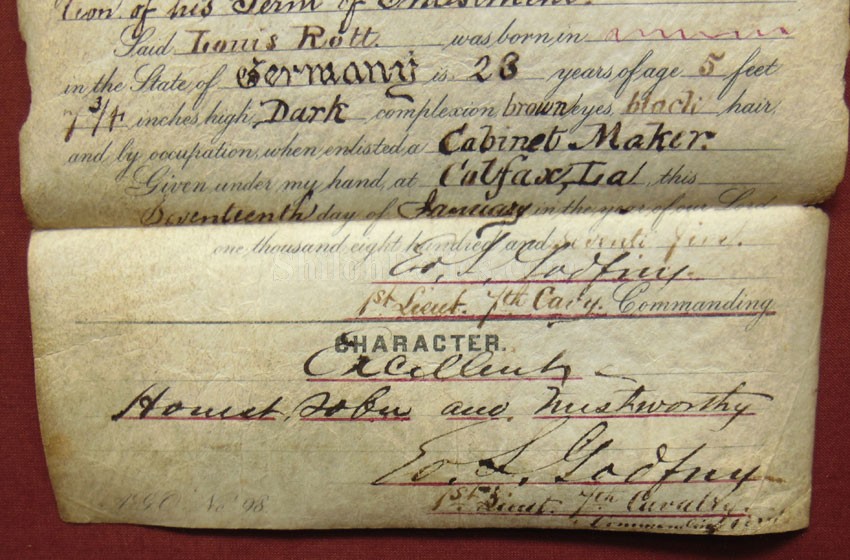 tion of his Term of Enlistment.
Said Louis Rott. was born in
in the State of Germany is 23 years of age 5 feet
7 3/4 inches high, Dark complexion, brown eyes, black hair,
and by occupation, when enlisted, a Cabinet Maker.
Given under my hand, at Colfax, La this
Seventeenth day of January in the year of our Lord
one thousand eight hundred and seventy five.
Ed. S. Godfrey
1st Lieut. 7th Cavy. Commanding
CHARACTER.
Excellent
Honest, sober and trustworthy
Ed. S. Godfrey
1st Lieut. 7th Cavalry.
Commanding
A. G. O. No. 98.